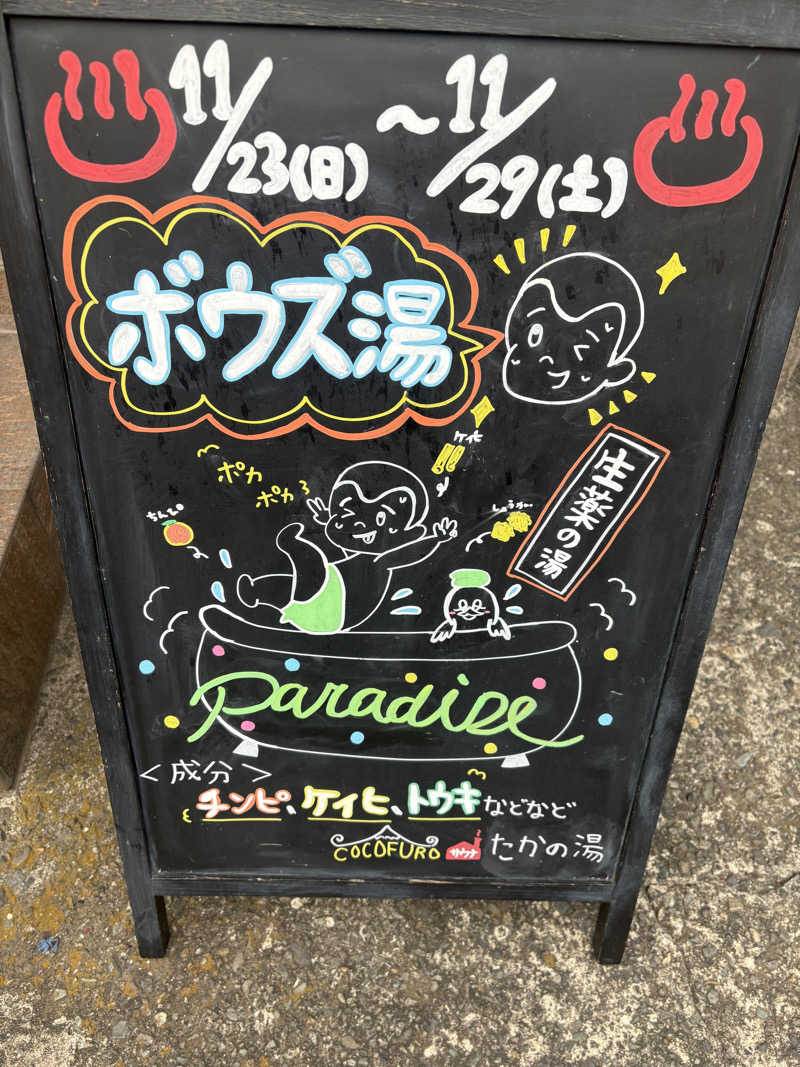 11/23(日) 〜11/29(土)
ボウズ湯
ケイヒ
ポカ
ポカ
ちんぴ
生薬の湯
Paradise
<成分>
チンピ、ケイヒ、トウキなどなど
COCOFURO サウナ たかの湯